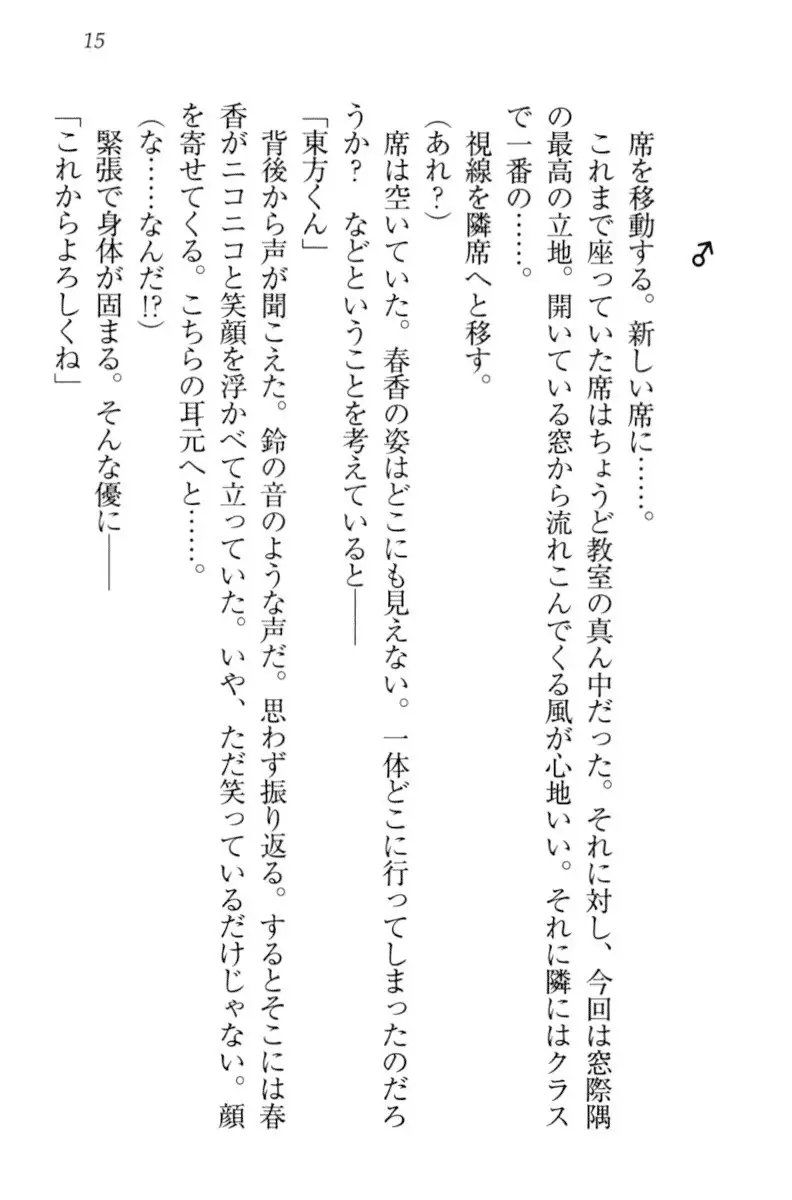 15
♂
席を移動する。新しい席に……。
これまで座っていた席はちょうど教室の真ん中だった。それに対し、今回は窓際隅
の最高の立地。開いている窓から流れこんでくる風が心地いい。それに隣にはクラス
で一番の……。
視線を隣席へと移す。
（あれ？）
席は空いていた。春香の姿はどこにも見えない。一体どこに行ってしまったのだろ
うか？　などということを考えていると――
「東方くん」
背後から声が聞こえた。鈴の音のような声だ。思わず振り返る。するとそこには春
香がニコニコと笑顔を浮かべて立っていた。いや、ただ笑っているだけじゃない。顔
を寄せてくる。こちらの耳元へと……。
（な……なんだ!?）
緊張で身体が固まる。そんな優に――
「これからよろしくね」